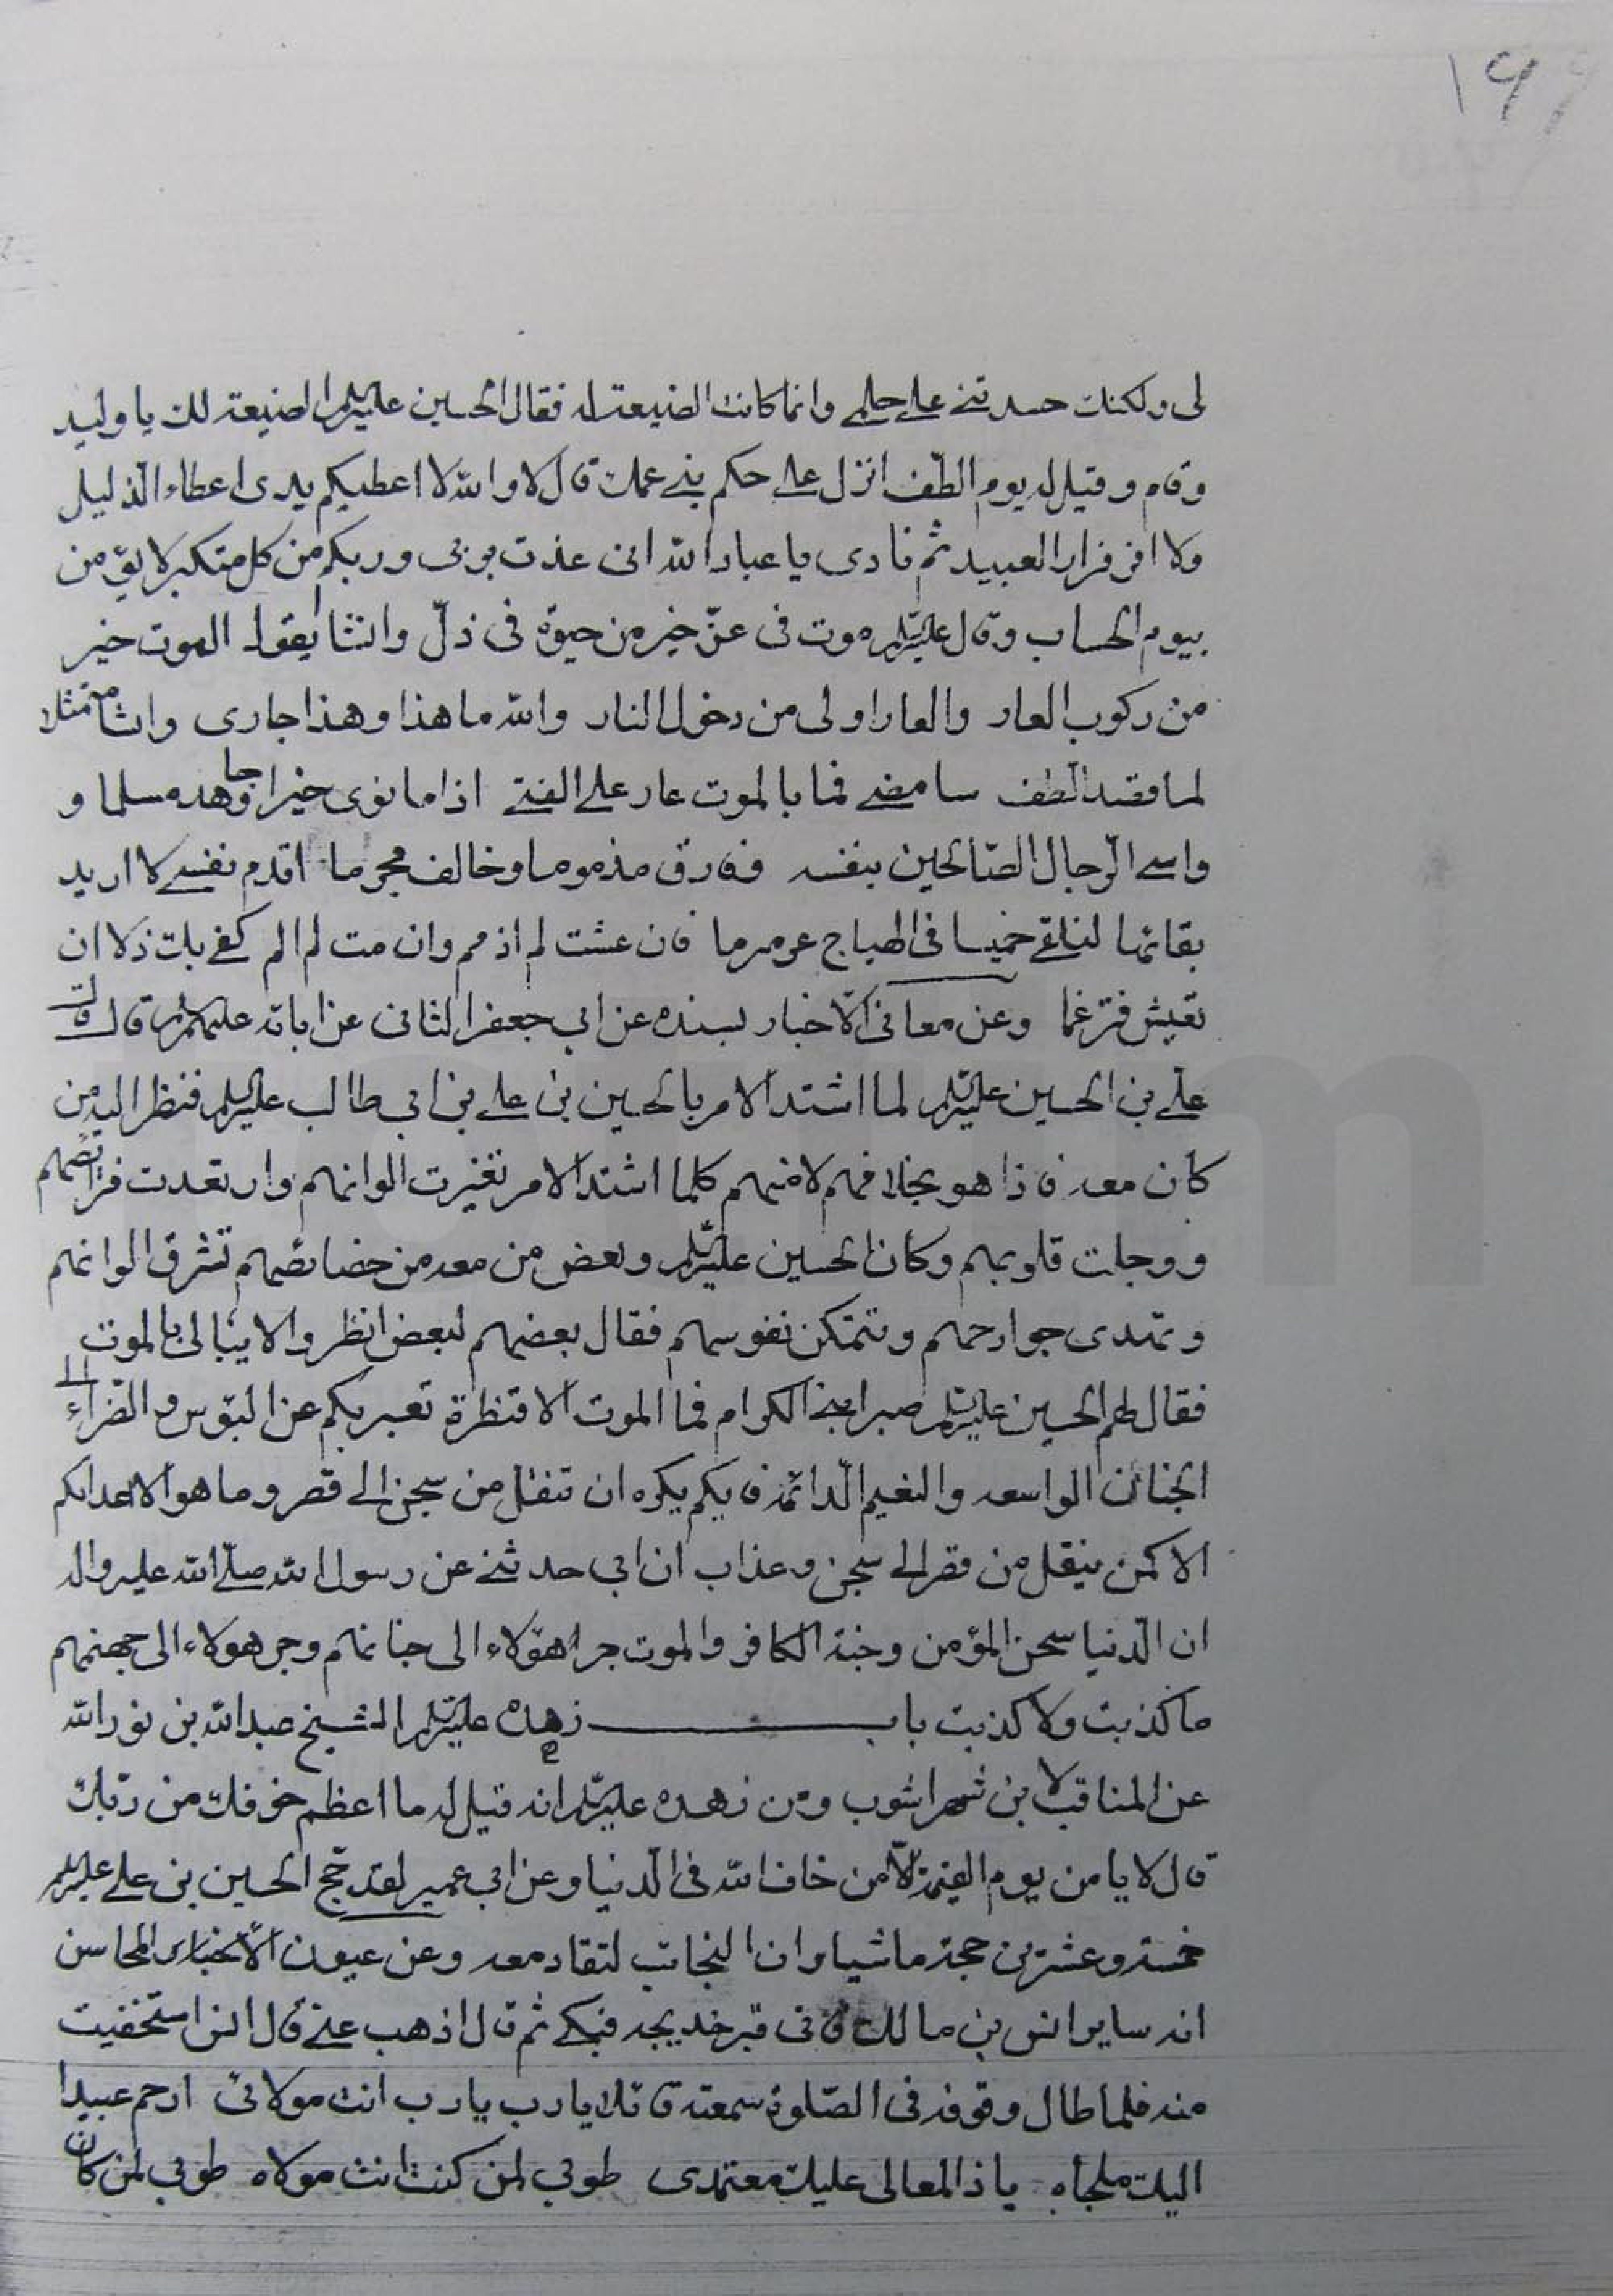 ١٩٩
لى ولكنك حسدتنى على حلمى وانما كانت الضيعة له فقال الحسين عليه السلم الضيعة لك يا وليد
وقام وقيل له يوم الطّف انزل على حكم بنى عمك قال لا والله لا اعطيكم يدى اعطاء الذليل
ولا افر فرار العبيد ثم نادى يا عباد الله انى عذت بربى وربكم من كل متكبر لا يؤمن
بيوم الحساب وقال عليه السلم موت فى عزّ خير من حيوة فى ذلّ وانشا يقول الموت خير
من ركوب العار والعار اولى من دخول النار والله ما هذا وهذا جارى وانشا متمثلا
لما قصد الطف سامضى فما بالموت عار على الفتى اذا ما نوى خيرا وجاهده مسلما و
واسى الرّجال الصّالحين بنفسه وفارق مذموما وخالف مجرما اقدم نفسى لا اريد
بقائها لنلقى خميسا فى الهياج عرمرما فان عشت لم اذمم وان مت لم الم كفى بك ذلا ان
تعيش فترغما وعن معانى الاخبار بسنده عن ابى جعفر الثانى عن ابائه عليهم السلم قال قال
على بن الحسين عليه السلم لما اشتد الامر بالحسين بن على بن ابى طالب عليه السلم فنظر اليه من
كان معه فاذا هو بخلافهم لانهم كلما اشتد الامر تغيرت الوانهم وارتعدت فرائصهم
ووجلت قلوبهم وكان الحسين عليه السلم وبعض من معه من خصائصهم تشرق الوانهم
وتهدى جوارحهم وتتمكن نفوسهم فقال بعضهم لبعض انظروا لا يبالى بالموت
فقال لهم الحسين عليه السلم صبرا بنى الكرام فما الموت الا قنطرة تعبر بكم عن البؤس والضراء الى
الجنان الواسعه والنعيم الدائمة فايكم يكره ان تنقل من سجن الى قصر وما هو لاعدائكم
الا كمن ينقل من قصر الى سجن وعذاب ان ابى حدثنى عن رسول الله صلّى الله عليه واله
ان الدنيا سجن المؤمن وجنة الكافر والموت جسر هؤلاء الى جنانهم وجسر هولاء الى جهنمهم
ما كذبت ولا كذبت باب زهده عليه السلم الشيخ عبد الله بن نور الله
عن المناقب لابن شهراشوب ومن زهده عليه السلم انه قيل له ما اعظم خوفك من ربّك
قال لا يامن يوم القيمة الّا من خاف الله فى الدنيا وعن ابى عمير لقد حجّ الحسين بن على عليه السلم
خمسة وعشرين حجة ماشيا وان النجائب لتقاد معه وعن عيون الاخبار المحاسن
انه ساير انس بن مالك فاتى قبر خديجه فبكى ثم قال اذهب عنى قال انس استخفيت
منه فلما طال وقوفه فى الصّلوة سمعته قائلا يا رب يا رب انت مولائى ارحم عبيدا
اليك ملجاه يا ذا المعالى عليك معتمدى طوبى لمن كنت انت مولاه طوبى لمن كان